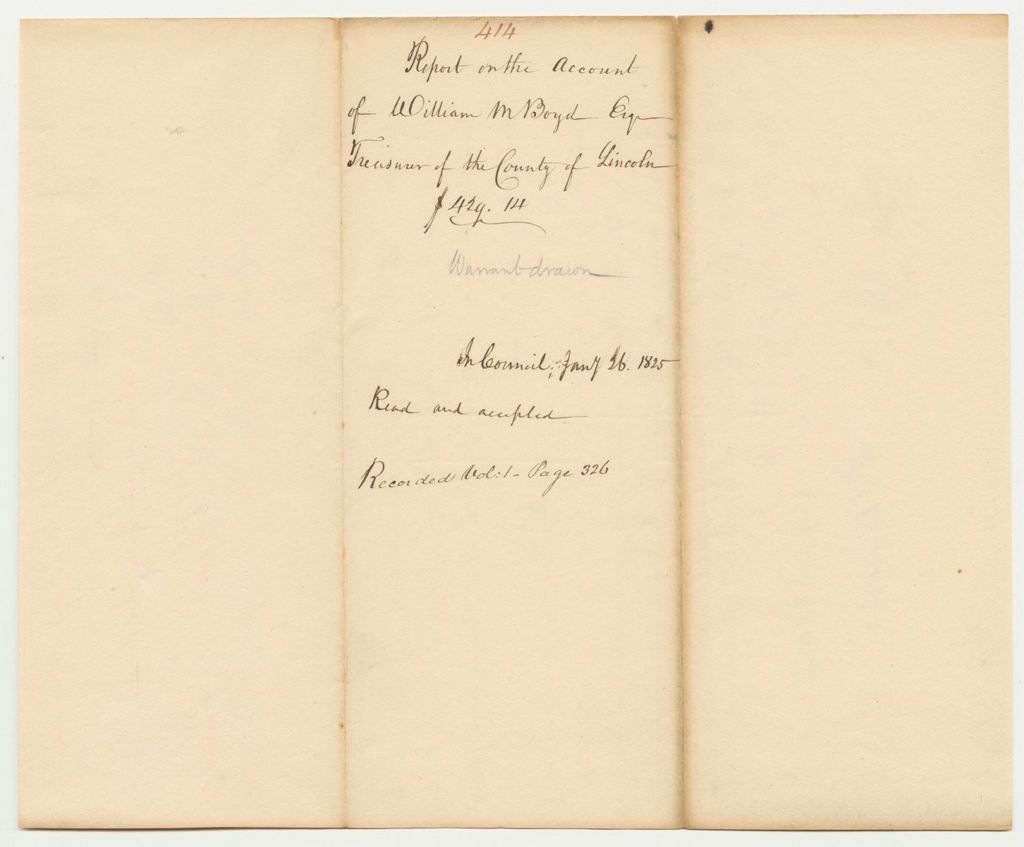 414
Report on the Account
of William M Boyd Esqr
Treasurer of the County of Lincoln
$429.14
Warrant drawn
In Council, Jany 26. 1825
Read and accepted
Recorded Vol: 1 - Page 326